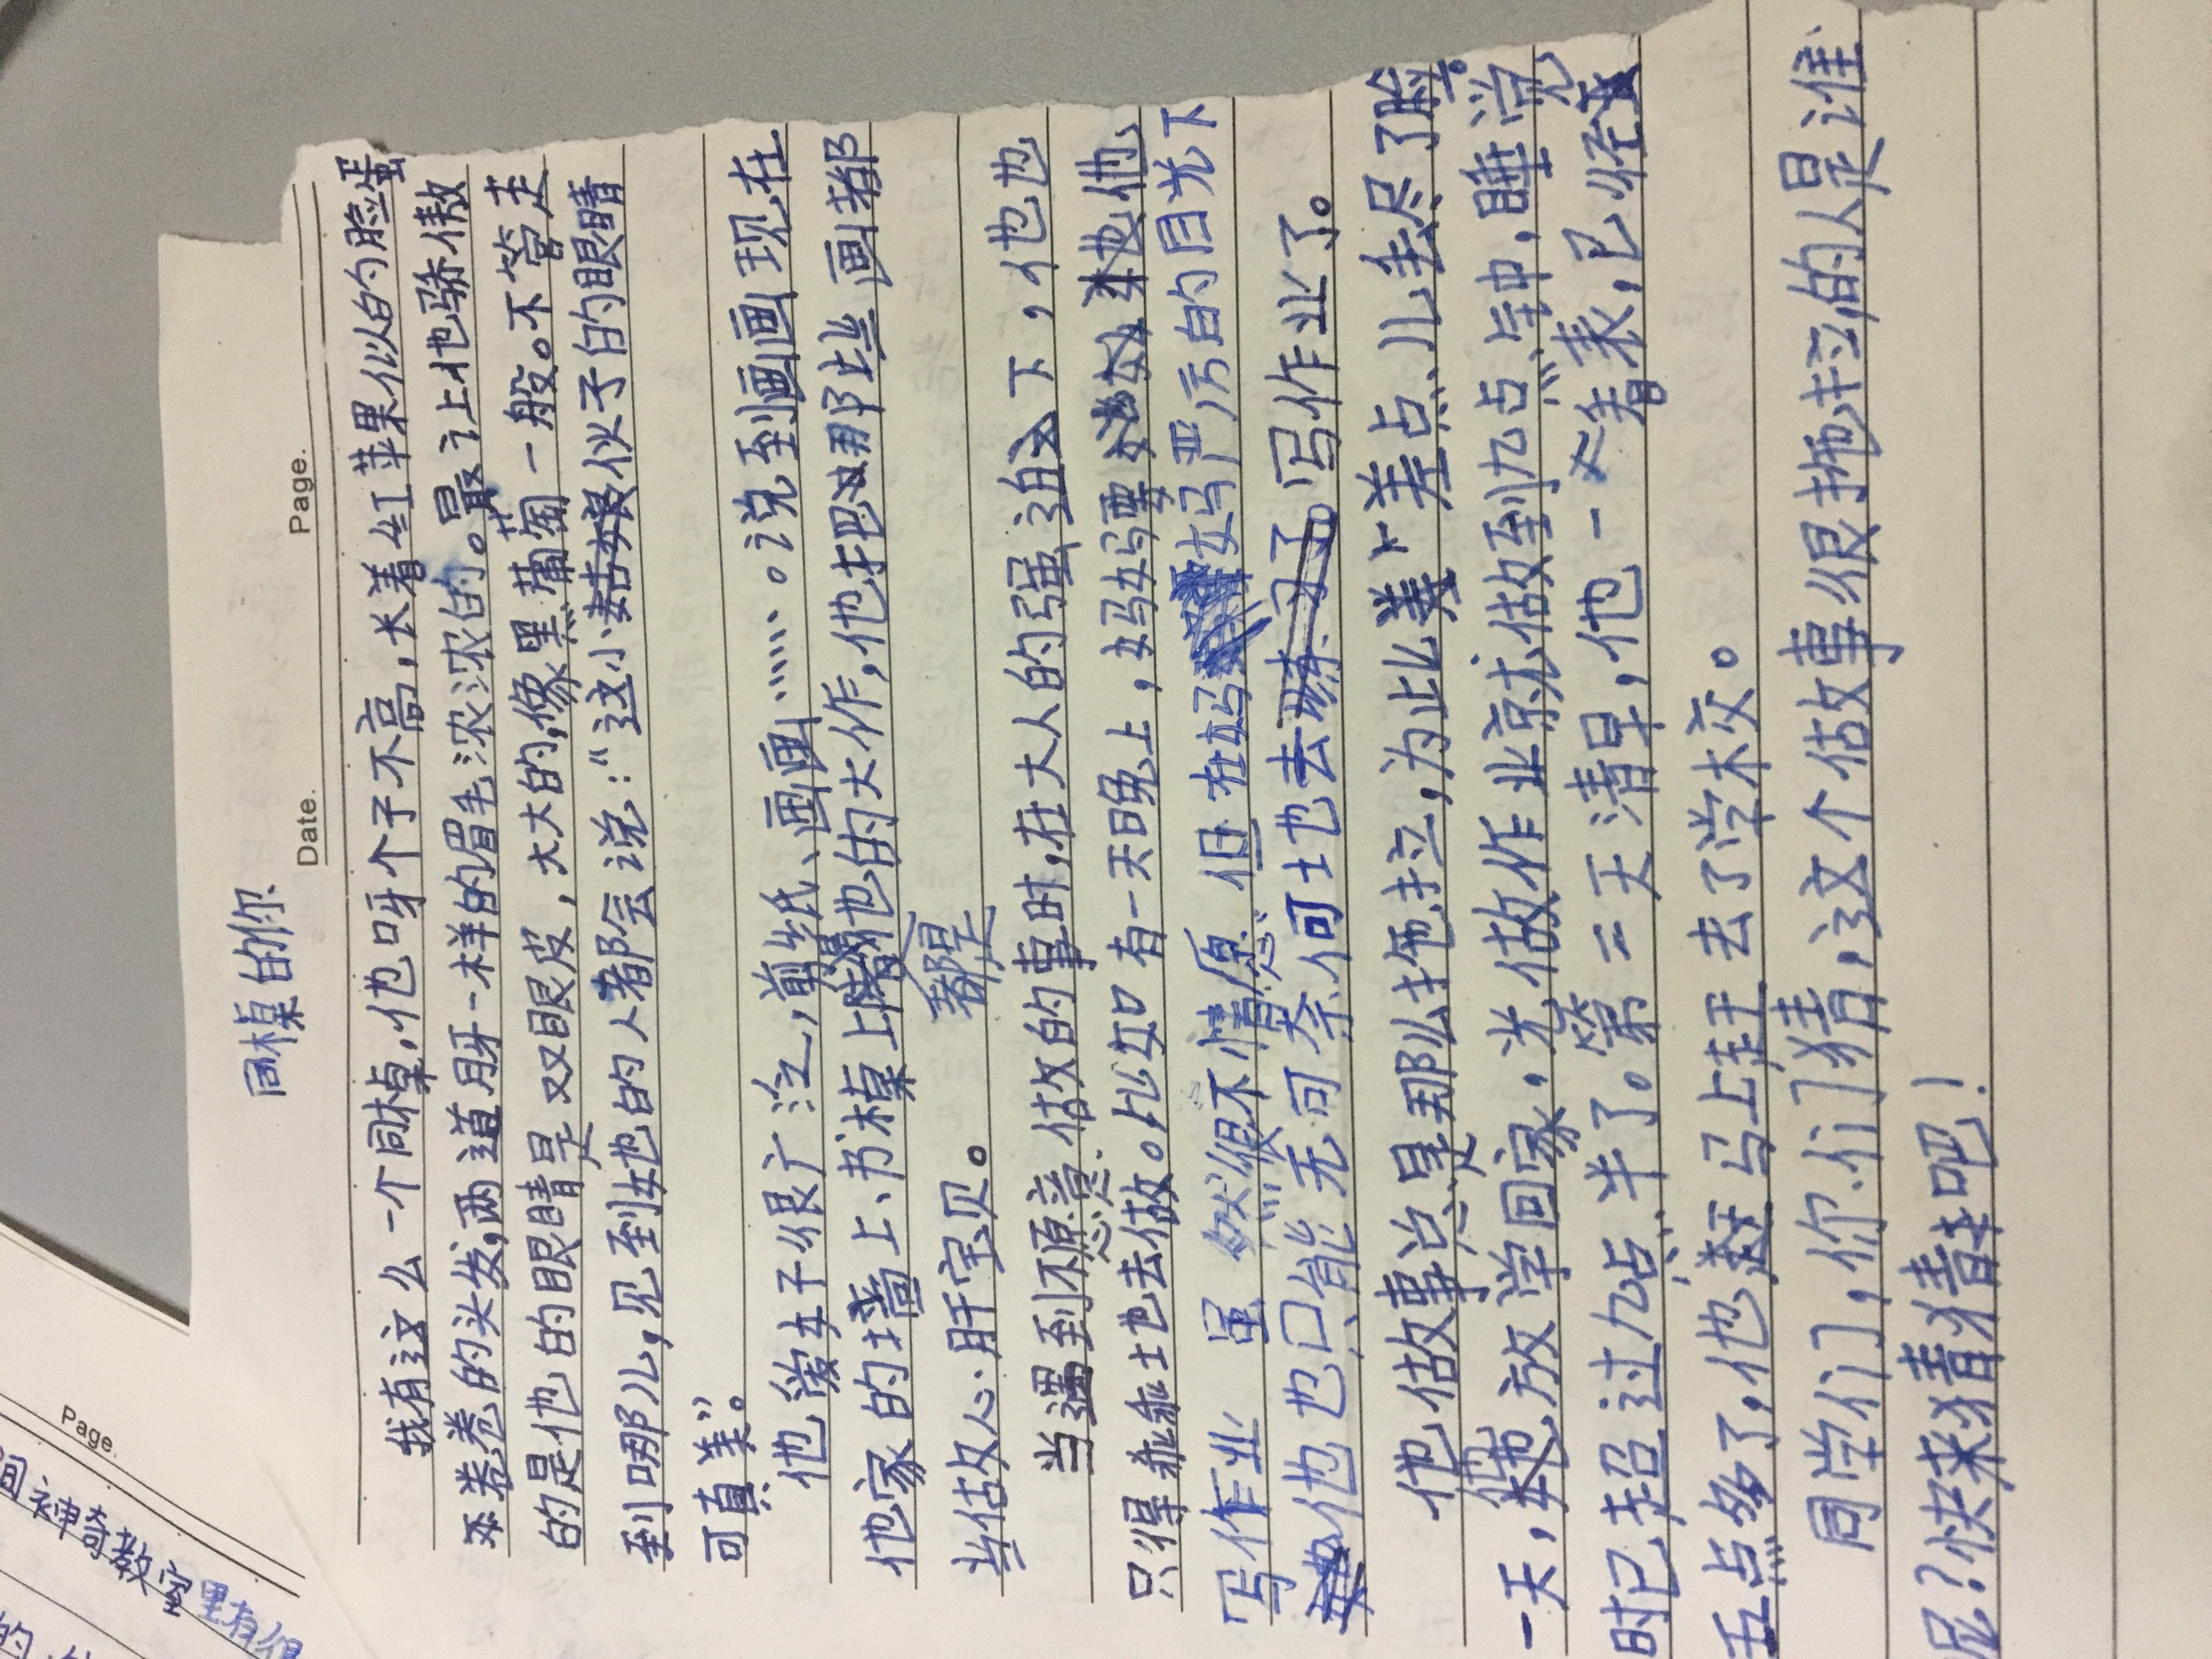 同桌的你
Date.
Page.
我有这么一个同桌,他呀个子不高,长着红苹果似的脸蛋
卷卷的头发,两道月牙一样的眉毛浓浓的。最让他骄傲
的是他的眼睛是双眼皮,大大的,像黑葡萄一般。不管走
到哪儿,见到他的人都会说:“这小伙子的眼睛
可真美”。
他爱好很广泛,剪纸、画画……。说到画画现在
他家的墙上、书桌上都是他的大作,他把那些画都
当做心肝宝贝。
当遇到不愿意做的事时,在大人的强迫下,他也
只得乖乖地去做。比如有一天晚上,妈妈要他
写作业 虽然很不情愿 但在妈妈严厉的目光下
他也只能无可奈何地去写作业了。
他做事总是那么拖拉,为此差点儿丢尽了脸。
一天,他放学回家,光做作业就做到九点钟,睡觉
时已超过九点半了。第二天清早,他一看表,已经
五点多了,他马上赶去了学校。
同学们,你们猜猜,这个做事很拖拉的人是谁
呢?快来猜猜吧!
Page.
间神奇教室里有很
的